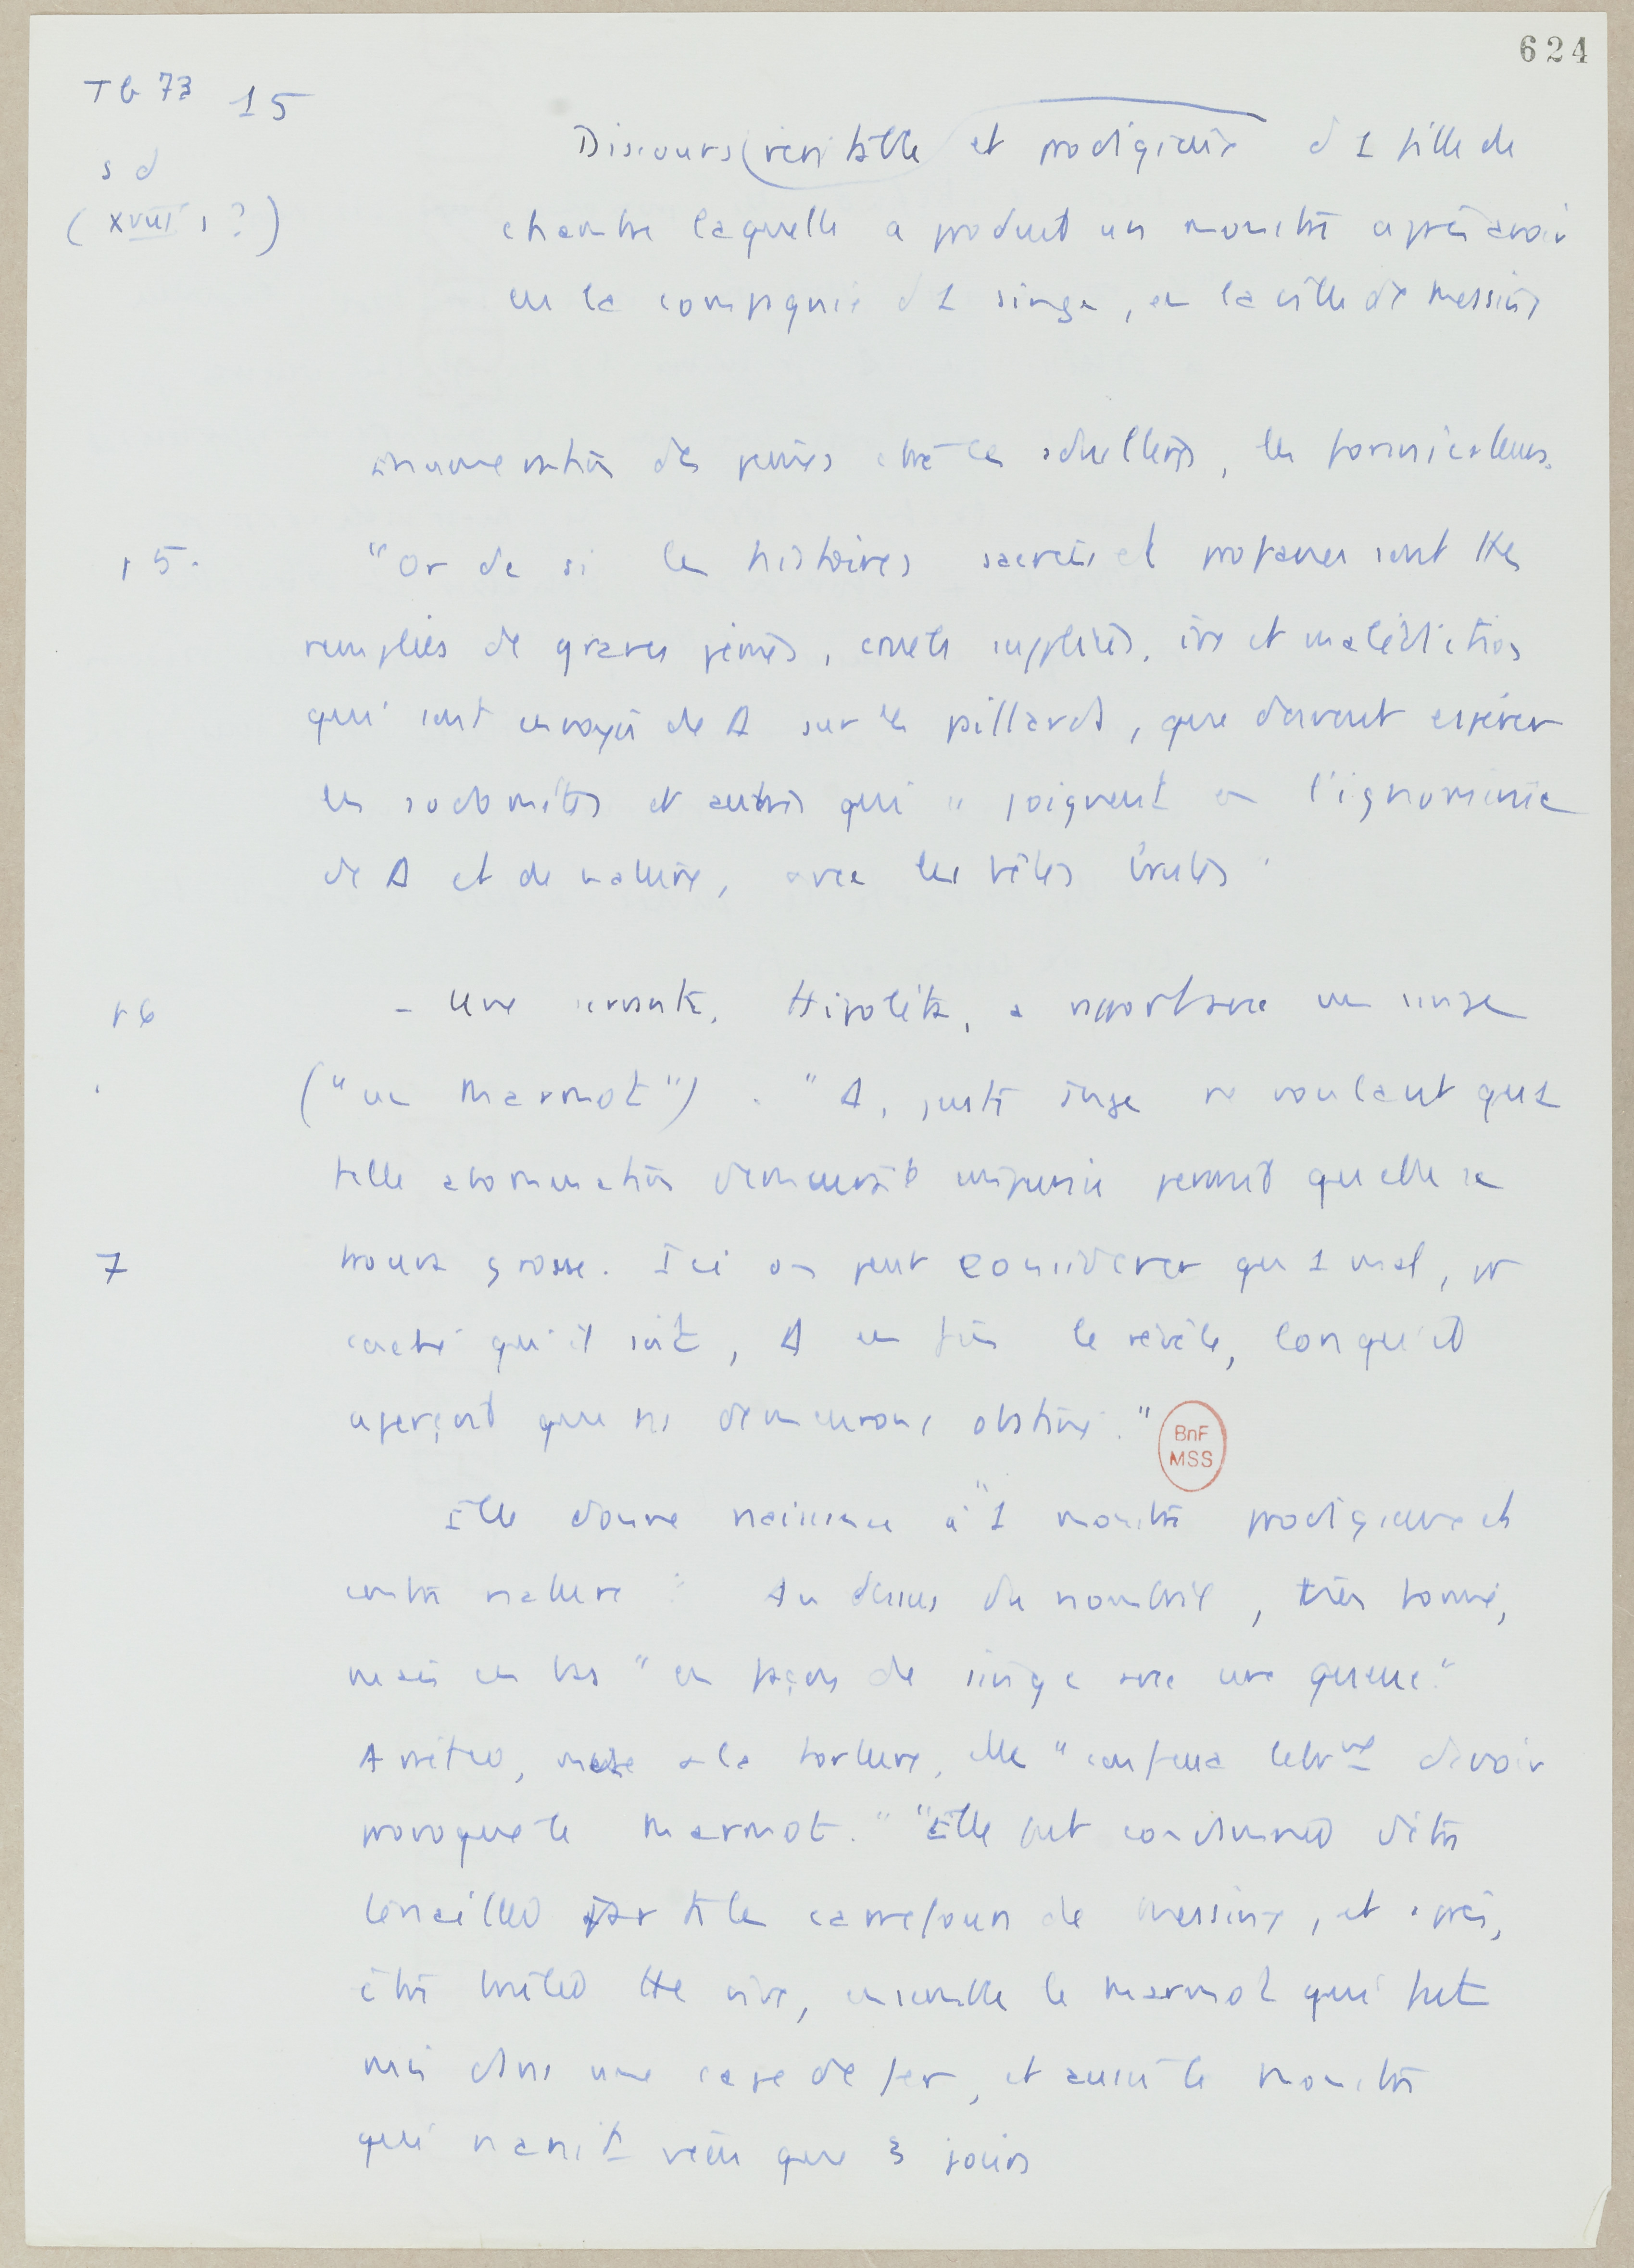 624
Tb 73 15
sd
(XVIII s ?)
Discours (veritable et prodigieux d 1 fille de
chambre laquelle a produit un monstre après avoir
eu la compagnie d 1 singe, en la ville de Messine
énumération des peines contre les adultères, les fornicateurs.
p 5. "Or de si les histoires sacrées et profanes sont ttes
remplies de graves peines, cruels supplices, ire et malédictions
qui sont envoyés de Δ sur les paillards, que doivent espérer
les sodomites et autres qui se joignent en l'ignominie
de Δ et de nature, avec les bêtes brutes.
p 6 - Une servante, Hipolita, a rapport avec un singe
("un Marmot"). "Δ, juste juge ne voulant que 1
telle abomination demeurât impunie permit quelle se
7 trouva grosse. Ici on peut considerer qu 1 mal, pr
caché qu'il soit, Δ en fin le révèle, lorsqu'il
aperçoit que ns demeurons obstinés."
Elle donne naissance à "1 monstre prodigieux et
contre nature": Au dessus du nombril, très formé,
mais en bas "en façon de singe avec une queue."
Arrêtée, mise à la torture, elle "confessa d'avoir
provoqué le Marmot." "Elle fut condamnée d'être
tenaillée par ts les carrefours de Messine, et après,
être brûlée tte vive, ensemble le Marmot qui fut
mis dans une cage de fer, et aussi le monstre
qui n'avait vécu que 3 jours
BnF
MSS